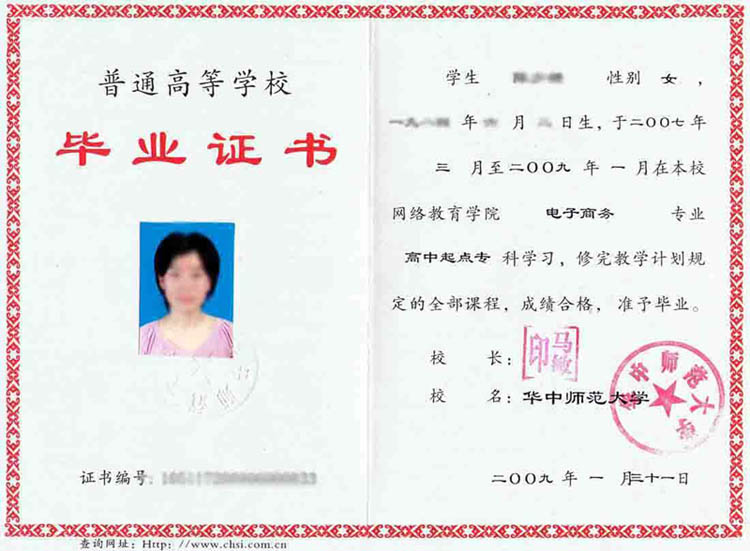 普通高等学校
毕业证书
证书编号:
查询网址: Http: //www.chsi.com.cn
学生 性别 女 ,
年 月 日生, 于二〇〇七年
三 月至二〇〇九 年 一 月在本校
网络教育学院 电子商务 专业
高中起点专 科学习, 修完教学计划规
定的全部课程, 成绩合格, 准予毕业。
校 长: 马敏印
校 名: 华中师范大学
华中师范大学
二〇〇九 年 一 月三十一日